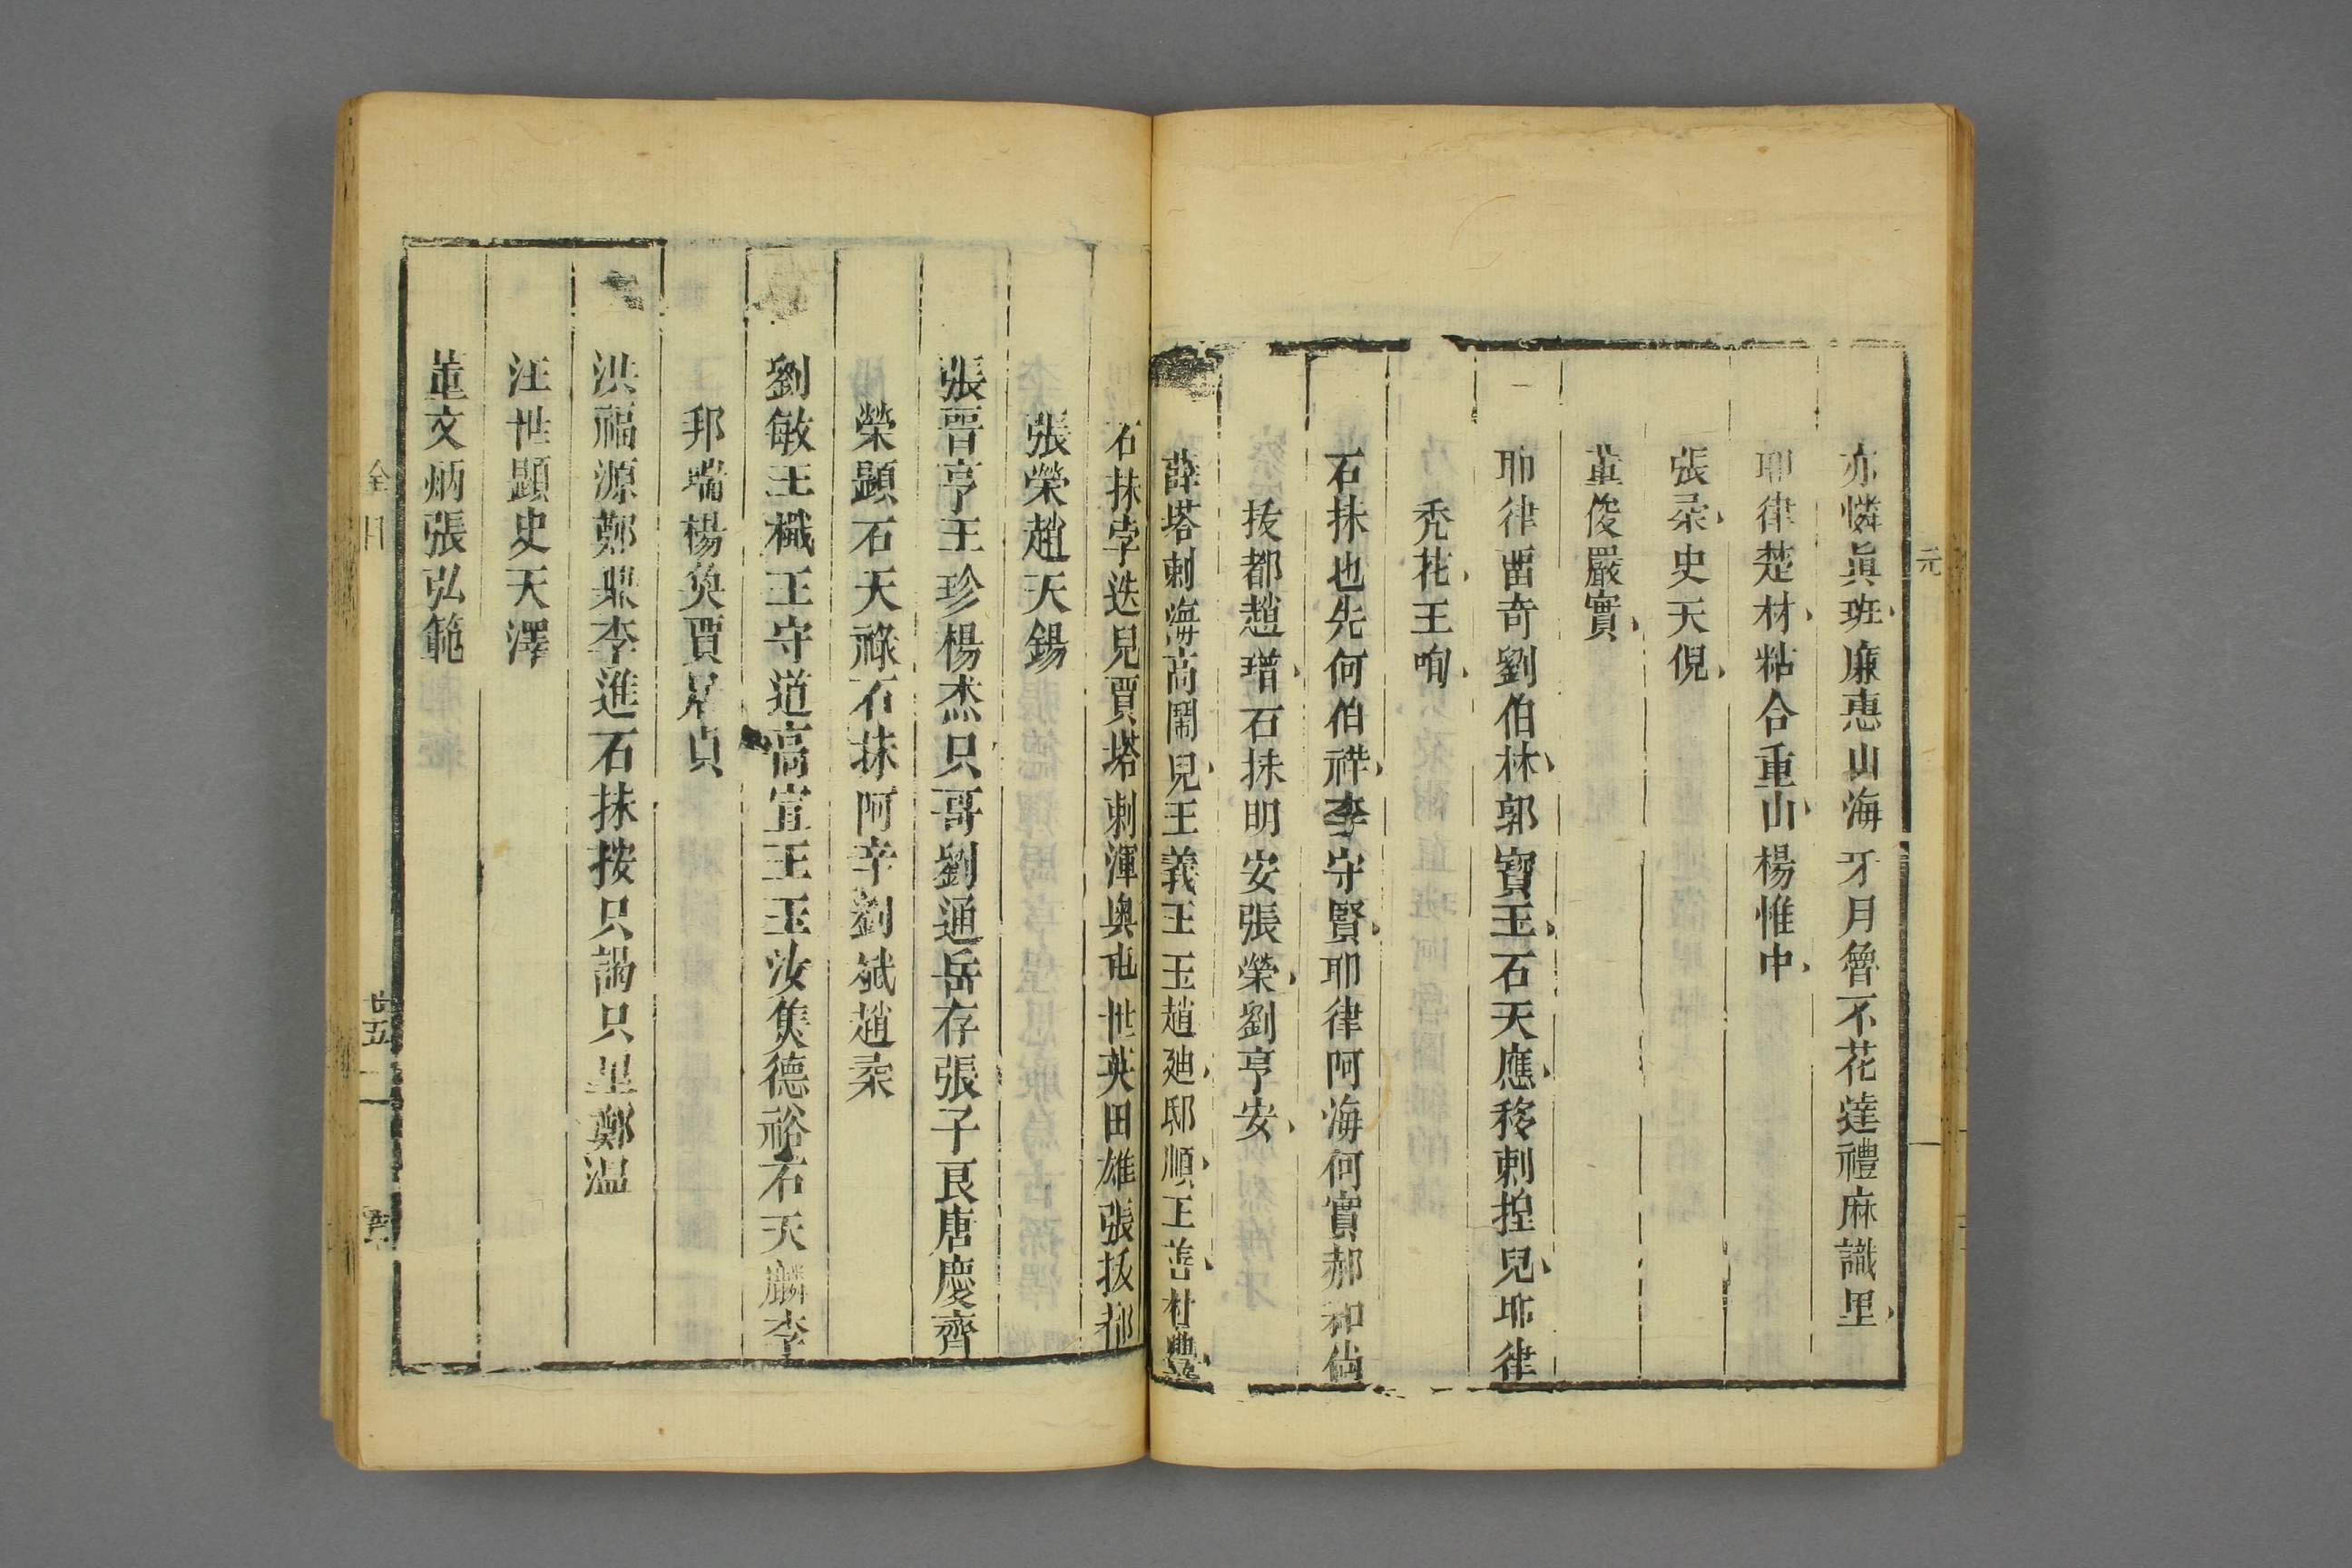 元
亦憐眞班廉惠山海牙月魯不花達禮麻識里
耶律楚材粘合重山楊惟中
張柔史天倪
董俊嚴實
耶律畱哥劉伯林郭寶玉石天應移剌揑兒耶律
禿花王㫬
石抹也先何伯祥李守賢耶律阿海何實郝和尚
拔都趙瑨石抹明安張榮劉亨安
薛塔剌海高鬧兒王義王玉趙廸邸順王善杜豐
石抹孛迭兒賈塔剌渾奥屯世英田雄張拔都
張榮趙天錫
張晉亨王珍楊杰只哥劉通岳存張子良唐慶齊
榮顯石天祿石抹阿辛劉斌趙柔
劉敏王檝王守道高宣王玉汝焦德裕石天麟李
邦瑞楊奐賈居貞
洪福源鄭鼎李進石抹按只謁只里鄭温
汪世顯史天澤
董文炳張弘範
全目
廿五